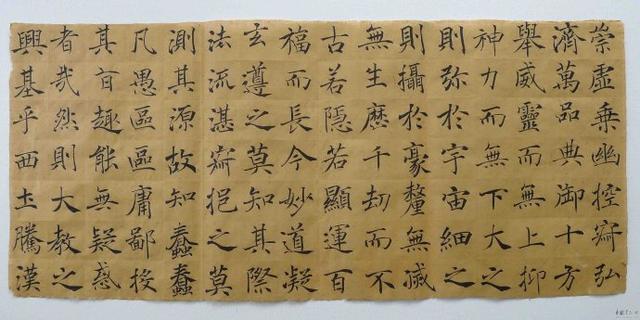 崇虛乘幽控寂弘
濟萬品典御十方
舉威靈而無上抑
神力而無下大之
則弥於宇宙細之
則攝於豪釐無滅
無生歷千劫而不
古若隱若顯運百
福而長今妙道凝
玄遵之莫知其際
法流湛寂挹之莫
測其源故知蠢蠢
凡愚區區庸鄙投
其旨趣能無疑惑
者哉然則大教之
興基乎西土騰漢